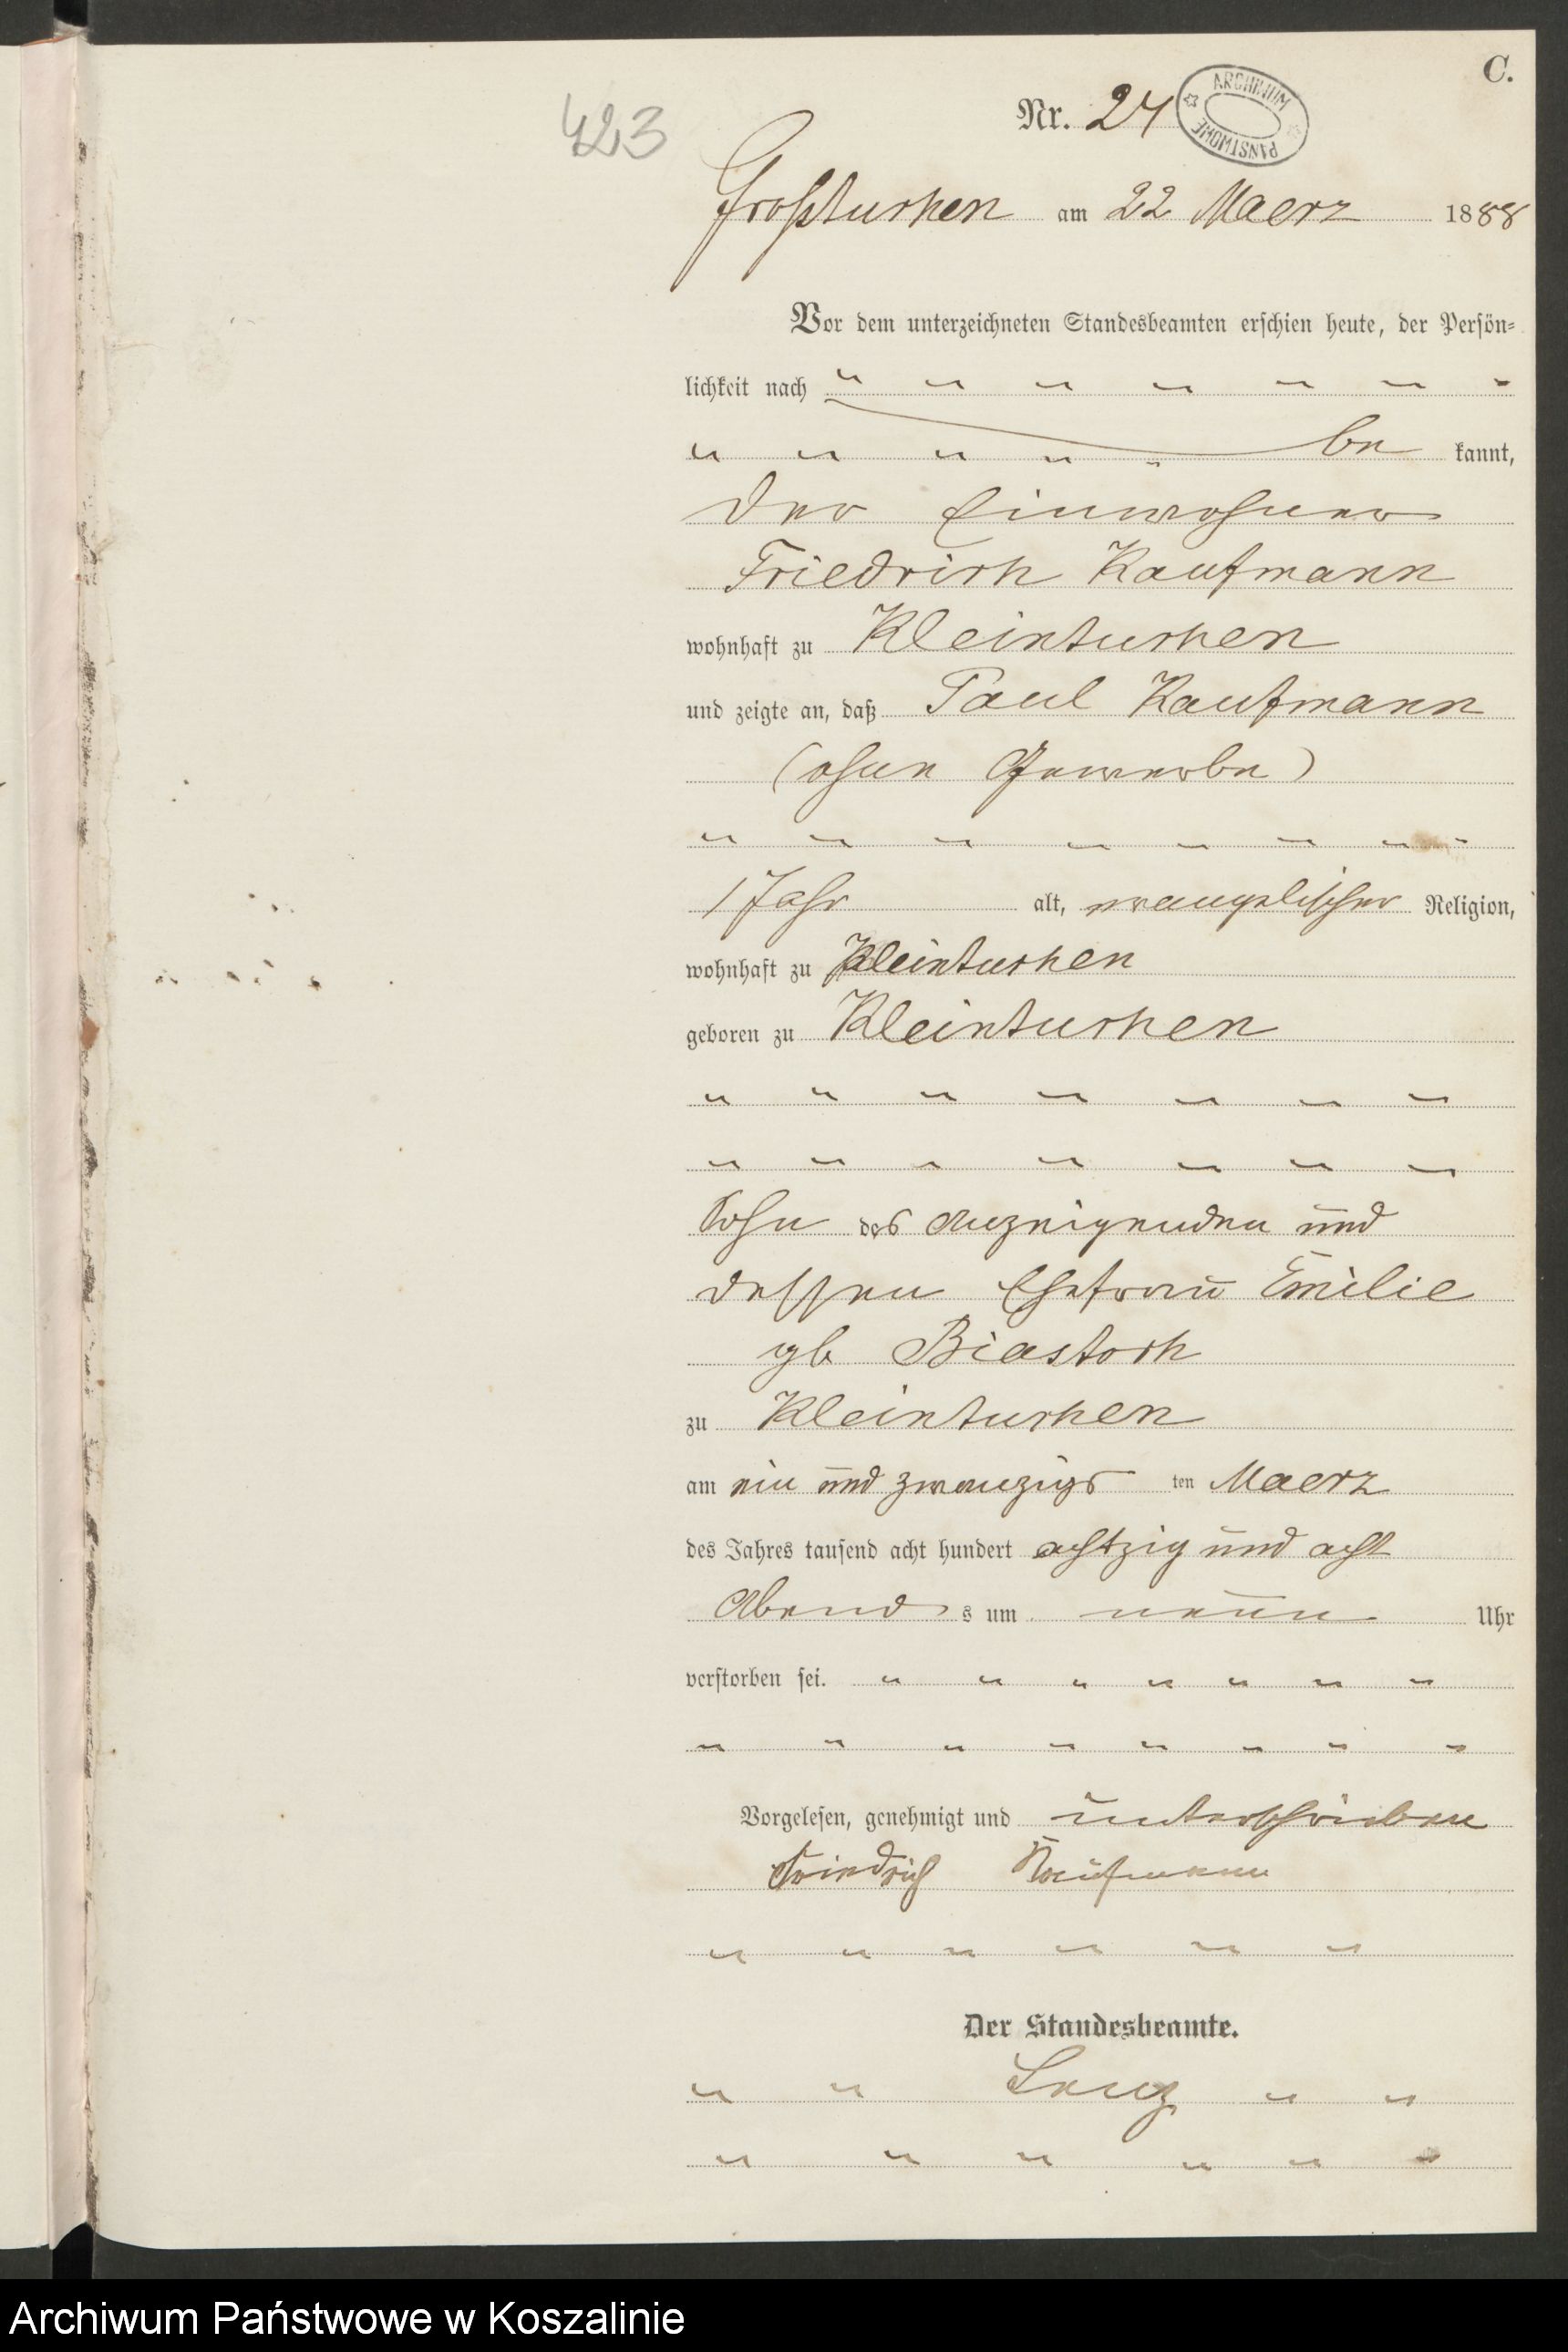 C.
423
Nr. 24
ARCHIWUM PAŃSTWOWE
Großtuchen am 22 Maerz 1888
Vor dem unterzeichneten Standesbeamten erschien heute, der Persön-
lichkeit nach " " " " " " "
" " " " " be kannt,
der Einwohner
Friedrich Kaufmann
wohnhaft zu Kleintuchen
und zeigte an, daß Paul Kaufmann
(ohne Gewerbe)
" " " " " " " "
1 Jahr alt, evangelischer Religion,
wohnhaft zu Kleintuchen
geboren zu Kleintuchen
" " " " " " "
" " " " " " "
Sohn des Anzeigenden und
dessen Ehefrau Emilie
gb Biastoch
zu Kleintuchen
am ein und zwanzigs ten Maerz
des Jahres tausend acht hundert achtzig und acht
Abend s um neun Uhr
verstorben sei. " " " " " " "
" " " " " " " "
Vorgelesen, genehmigt und unterschrieben
Friedrich Kaufmann
" " " " " "
Der Standesbeamte.
" " Lenz " "
" " " " " "
Archiwum Państwowe w Koszalinie